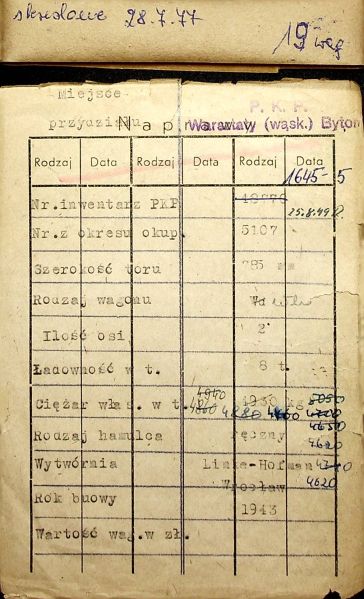 skreślono 28.7.77
19 wag
Miejsce
przydziału
P. K. P.
Warsztaty (wąsk.) Bytom
Naprawy
Rodzaj Data Rodzaj Data Rodzaj Data
1645-5
Nr.inwentarz PKP
25.8.49
Nr.z okresu okup. 5107
Szerokość toru 785 mm
Rodzaj wagonu
Ilość osi 2
Ładowność w t. 8 t.
4940 5050
Ciężar włas. w t. 4860 4880 4860 4930 kg. 4700
4650
Rodzaj hamulca ręczny 4620
Wytwórnia Linke-Hofman
Wrocław 4620
Rok buowy 1943
Wartość wag.w zł.